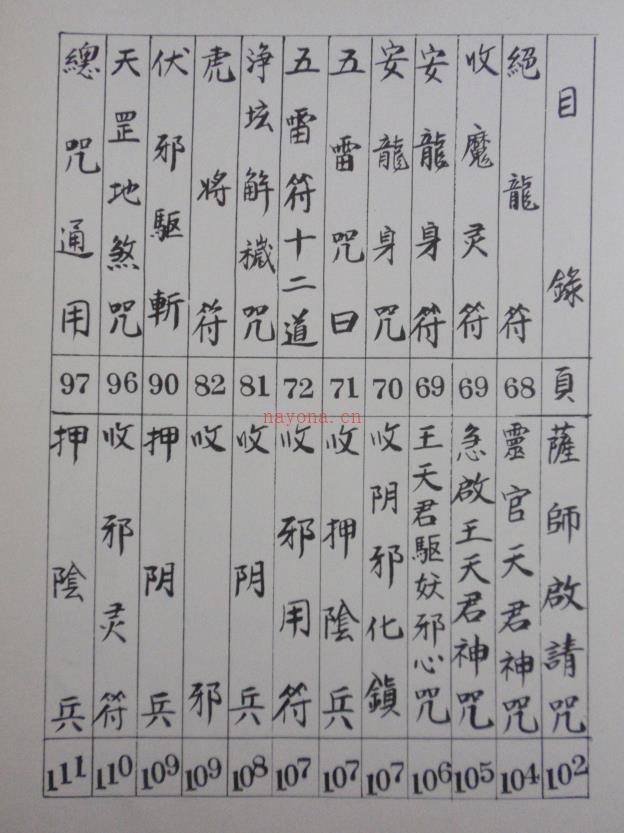 目錄
頁
絕龍符
68
收魔灵符
69
安龍身符
69
安龍身咒
70
五雷咒曰
71
五雷符十二道
72
淨坛解穢咒
81
虎將符
82
伏邪驅斬
90
天罡地煞咒
96
總咒通用
97
薩師啟請咒
102
靈官天君神咒
104
急啟王天君神咒
105
王天君驅妖邪心咒
106
收阴邪化鎮
107
收押陰兵
107
收邪用符
107
收阴兵
108
收邪
109
押阴兵
109
收邪灵符
110
押陰兵
111
nayona.cn